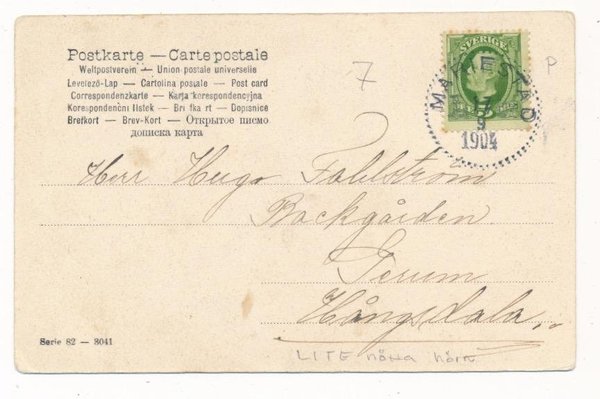 Postkarte — Carte postale
Weltpostverein — Union postale universelle
Levelező-Lap — Cartolina postale — Post card
Correspondenzkarte — Karta korespondencyjna
Korespondenční lístek — Brifkart — Dopisnice
Brefkort — Brev-Kort — Открытое письмо
дописка карта
7
P
SVERIGE
1904
Herr Hugo Fahlström
Backgården
Terum
Hångsdala
Serie 82 — 3041
LITE nötta hörn